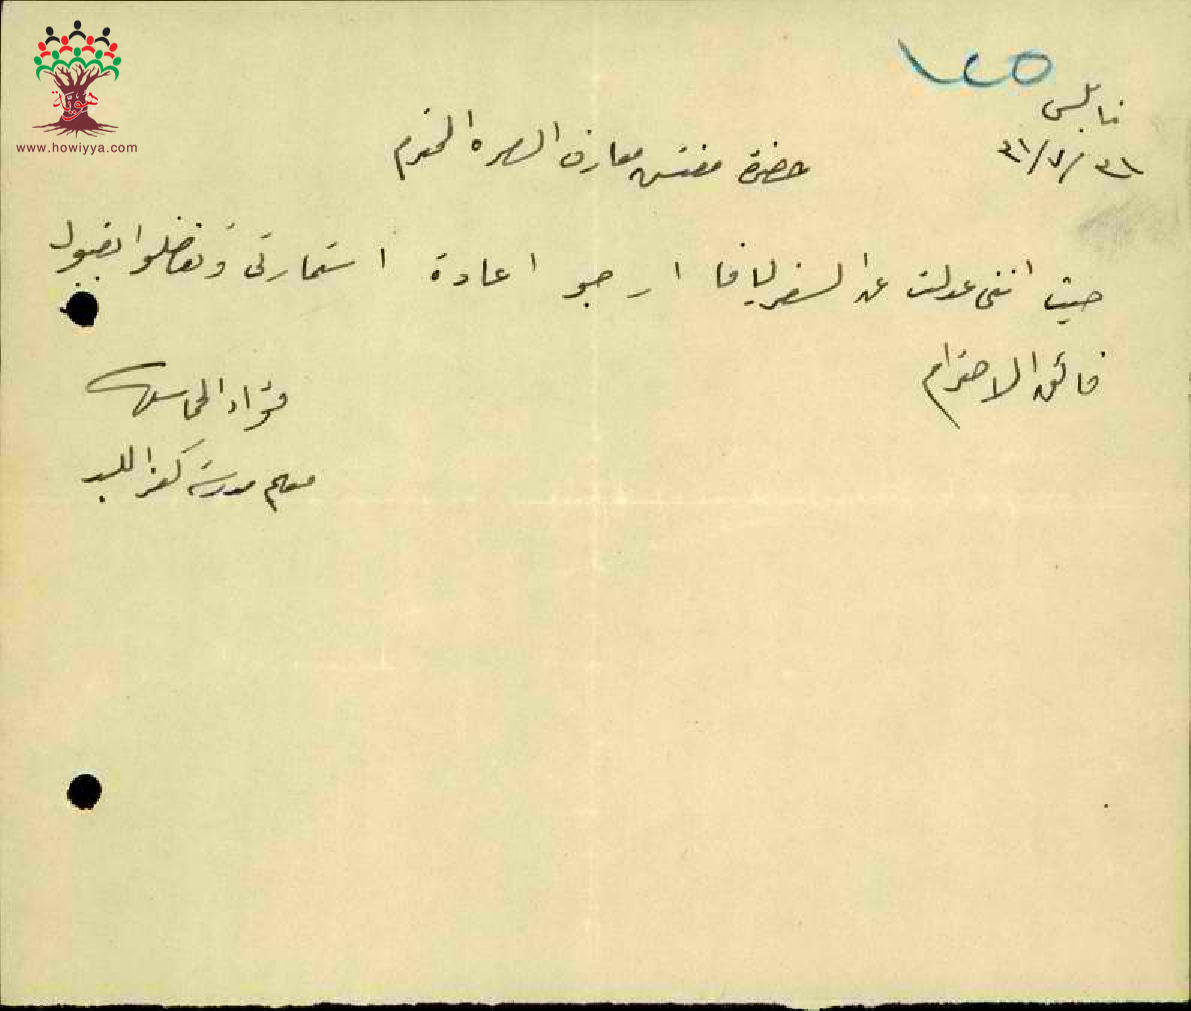 هوية
www.howiyya.com
١٤٥
نابلس
٣١/٧/٣١
حضرة مفتش معارف المحترم
حيث انني عدلت عن السفر ليافا ارجو اعادة استمارتي وتفضلوا بقبول
فائق الاحترام
فؤاد
معلم مدرسة كفر اللبد